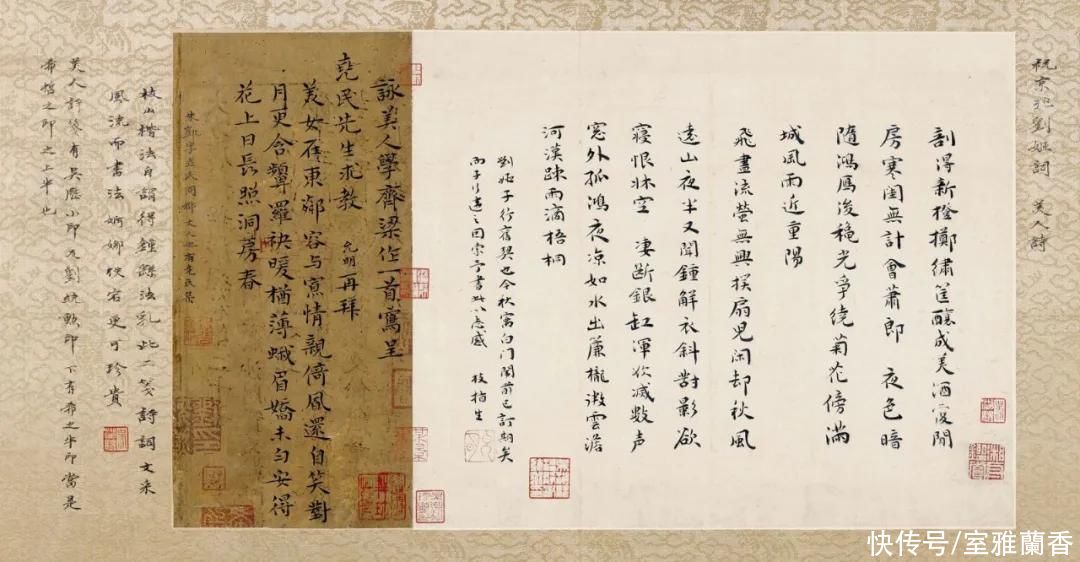 祝京兆劉姬詞 美人詩
剖得新橙擲繡筐釀成美酒復開
房寒閨無計會蕭郎 夜色暗
隨鴻鴈後穐光爭繞菊花傍滿
城風雨近重陽
飛盡流螢無興撲扇兒閑却秋風
遠山夜半又聞鐘解衣斜對影欲
寢恨牀空 凄斷銀缸渾欲滅數声
窓外孤鴻夜凉如水出簾櫳微雲澹
河漢踈雨滴梧桐
劉姬子行舊契也今秋寓白門閏前已訂期矣
而子行達之因 書此以志感 枝指生
詠美人學齊梁作一首寫呈
堯民先生求教 允明再拜
美女在東鄰容与寫情親倚風還自笑對
月更含顰羅袂暖猶薄蛾眉嬌未勻安得
花上日長照洞房春
朱凱字堯民同鄉文人也有堯民集
枝山楷法自謂得鍾繇法乳此二箋詩詞文采
風流而書法婀娜跌宕更可珍貴
美人詩箋有吳歷小印 劉統勳印下有希之半印當是
希哲之印之上半也
快传号/室雅蘭香